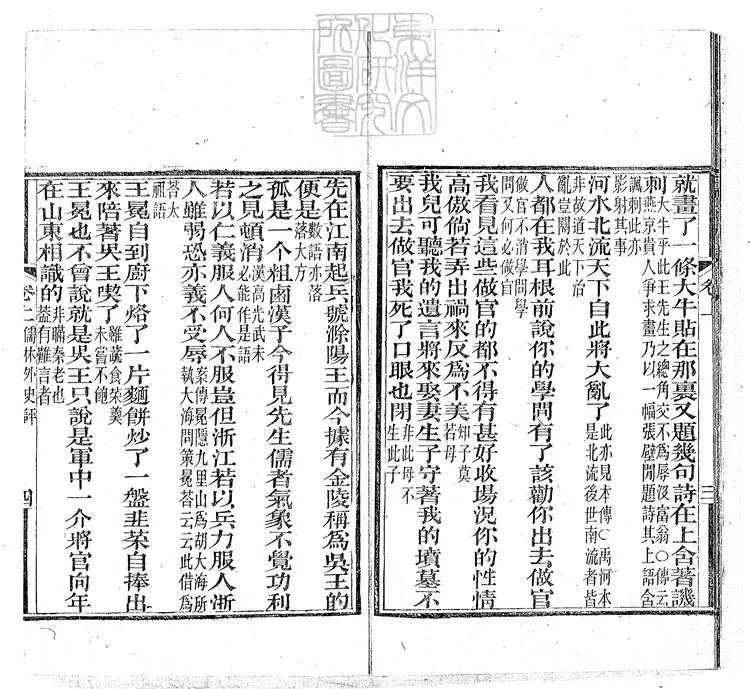 東洋文
化研究
所圖書
就畫了一條大牛貼在那裏又題幾句詩在上含著譏
刺大牛乎此王先生之總角交不爲辱沒富翁〇傳云
燕京貴人爭求畫乃以一幅張壁閒題詩其上語含
諷刺此亦
影射其事
河水北流天下自此將大亂了此亦見本傳〇禹河本
是北流後世南流者皆
非故道天下治
亂豈關於此
人都在我耳根前說你的學問有了該勸你出去做官
做官不消學問學
問又何必做官
我看見這些做官的都不得有甚好收場況你的性情
高傲倘若弄出禍來反爲不美知子莫
若母
我兒可聽我的遺言將來娶妻生子守著我的墳墓不
要出去做官我死了口眼也閉非此母不
生此子
卷一
三
先在江南起兵號滁陽王而今據有金陵稱爲吳王的
便是數語亦落
落大方
孤是一个粗鹵漢子今得見先生儒者氣象不覺功利
之見頓消漢高光武未
必能作是語
若以仁義服人何人不服豈但浙江若以兵力服人浙
人雖弱恐亦義不受辱案傳冕隱九里山爲胡大海所
執大海問策冕荅云云此借爲
荅太
祖語
王冕自到廚下烙了一片麵餅炒了一盤韭菜自捧出
來陪著吳王喫了雖蔬食菜羹
未嘗不飽
王冕也不曾說就是吳王只說是軍中一介將官向年
在山東相識的非瞞秦老也
蓋有難言者
卷上儒林外史評
四